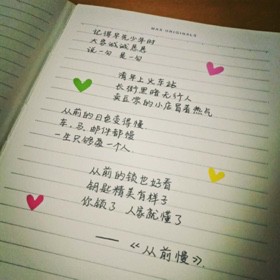 MUS ORIGINALS
记得早先少年时
大家诚诚恳恳
说一句 是一句
清早上火车站
长街黑暗无行人
卖豆浆的小店冒着热气
从前的日色变得慢
车,马,邮件都慢
一生只够爱一个人
从前的锁也好看
钥匙精美有样子
你锁了 人家就懂了
——《从前慢》